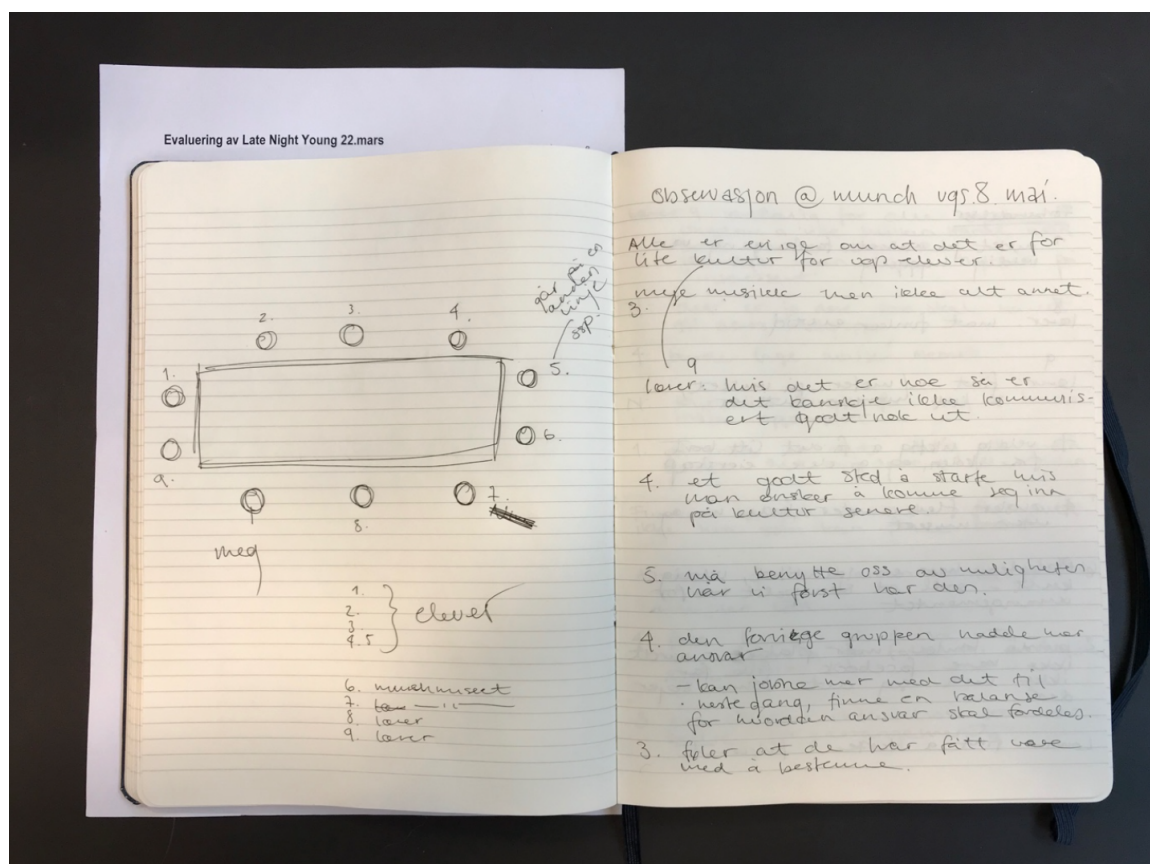 Evaluering av Late Night Young 22.mars
går på en
anden
linje
ssp.
2.
3.
4.
1.
5.
6.
9.
7.
8.
meg
1.
2.
3.
4.5
elever
6. munchmuseet
7. — 11 —
8. lærer
9. lærer
observasjon @ munch vgs. 8. mai.
Alle er enige om at det er for
lite kultur for vgs elever.
mye musikk men ikke alt annet.
3.
9
lærer: hvis det er noe så er
det kanskje ikke kommunis-
ert godt nok ut.
4. et godt sted å starte hvis
man ønsker å komme seg inn
på kultur senere.
5. må benytte oss av muligheten
når vi først har den.
4. den forrige gruppen hadde mer
ansvar
- kan jobbe mer med det til
neste gang, finne en balanse
for hvordan ansvar skal fordeles.
3. føler at de har fått være
med å bestemme.